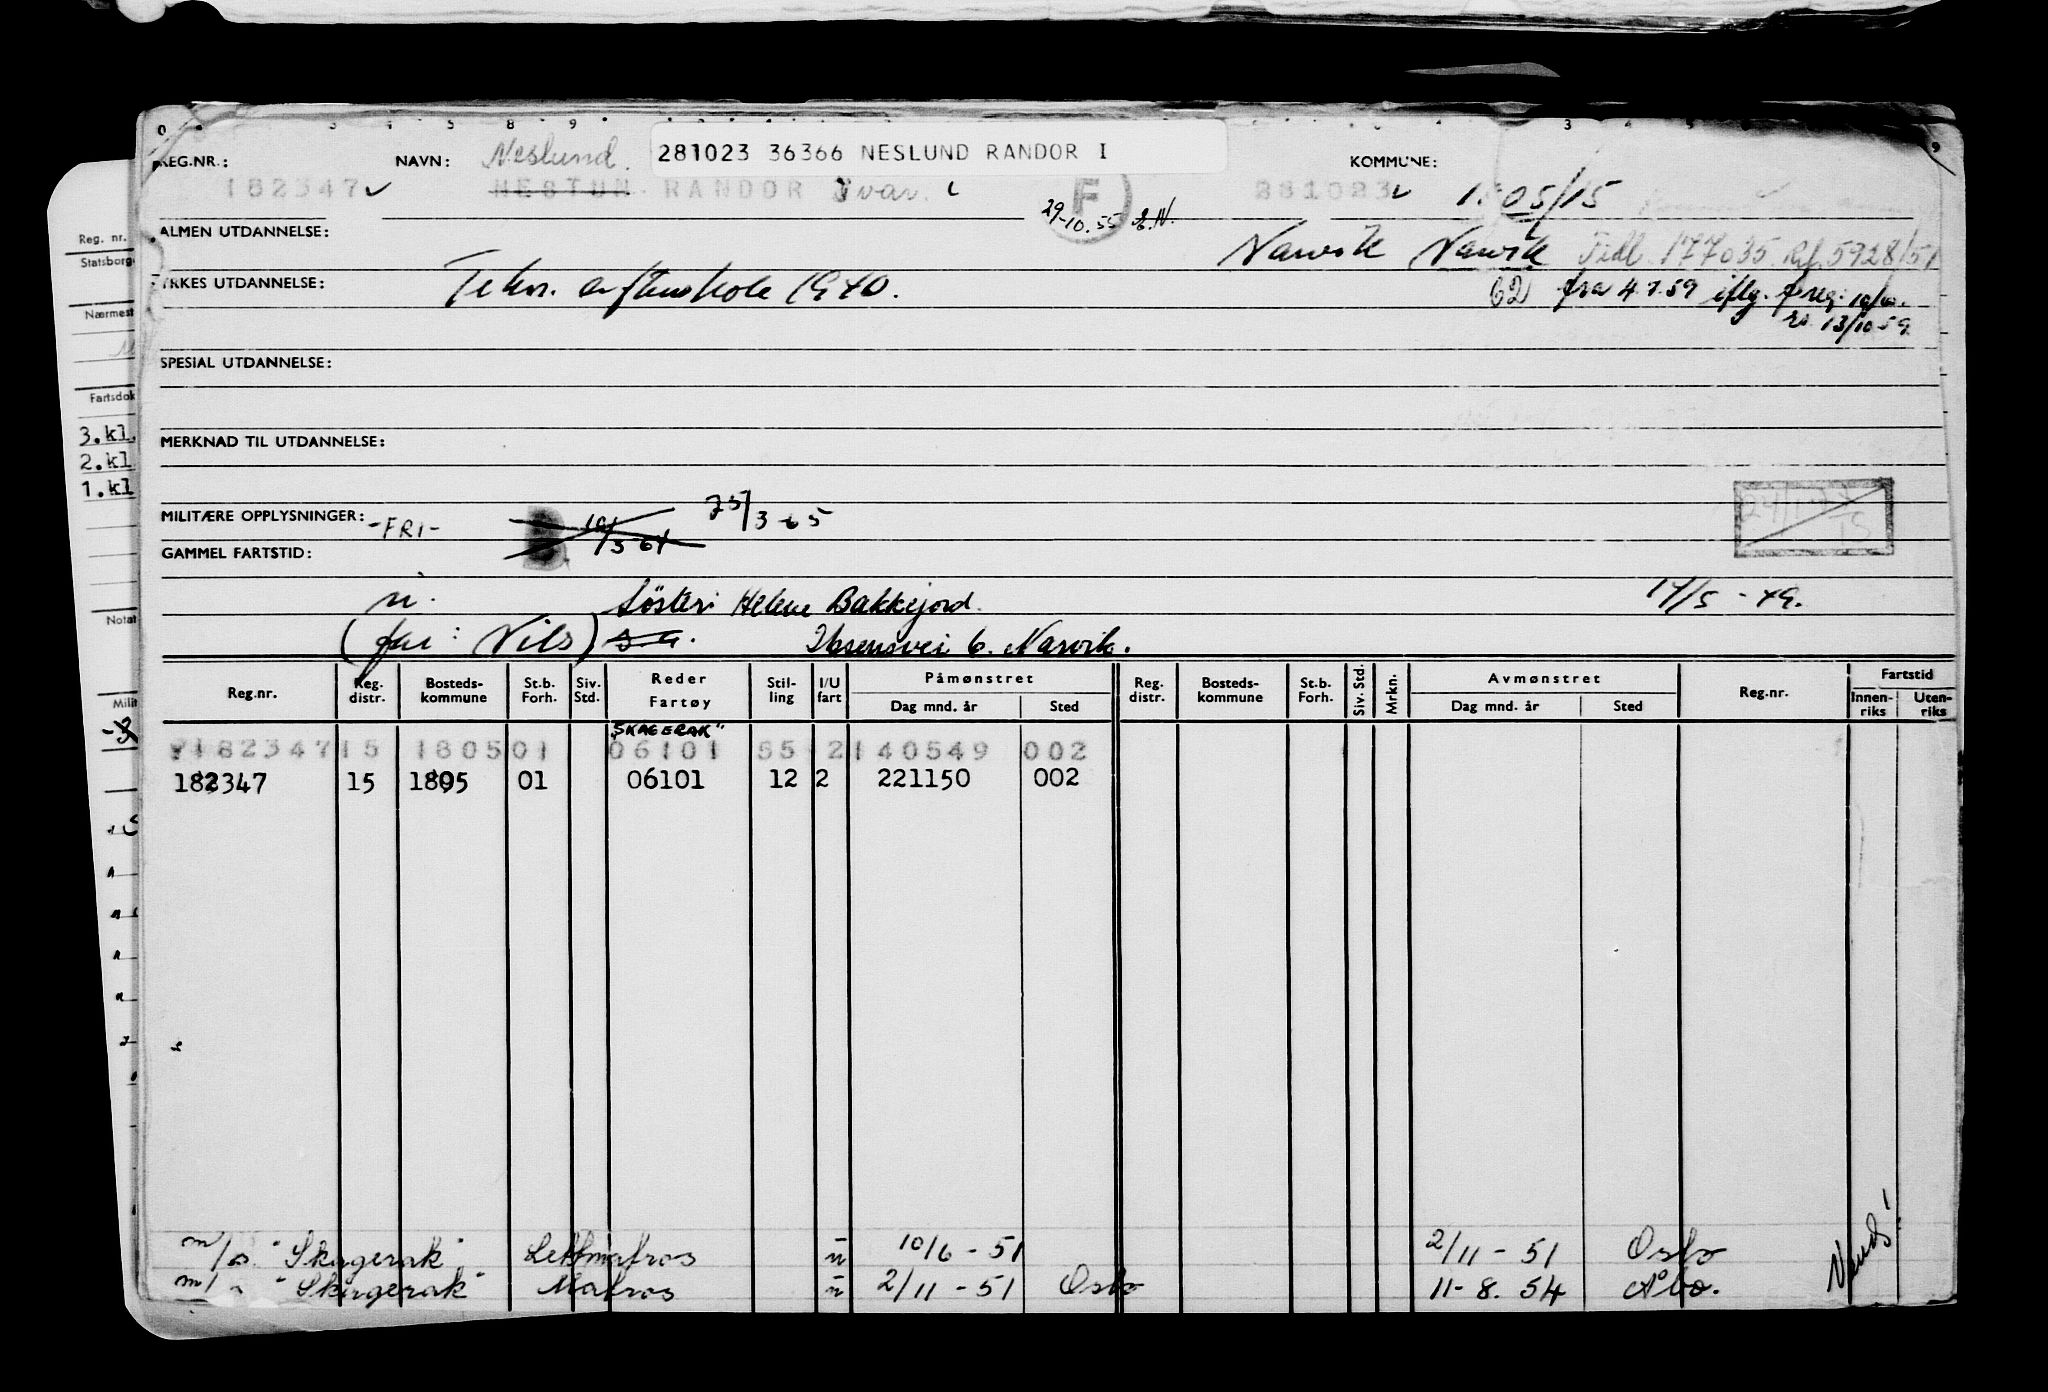 REG.NR.: NAVN: Neslund. 281023 36366 NESLUND RANDOR I KOMMUNE:
182347 NESTUN RANDOR Ivar. F 281023 1805/15
29-10.55
ALMEN UTDANNELSE: Narvik Narvik Tidl. 177035 Ref. 5928/51
YRKES UTDANNELSE: Tekn. aftenskole 1940. 62 fra 4.7.59 iflg.
13/10 59
SPESIAL UTDANNELSE:
MERKNAD TIL UTDANNELSE:
MILITÆRE OPPLYSNINGER: -FRI- 25/3-65
GAMMEL FARTSTID:
n. Söster: Helene Bakkejord. 14/5-49.
(far: Nils) s.a. Ibsensvei 6. Narvik.
Reg.nr. Reg. distr. Bosteds-kommune St.b. Forh. Siv. Std. Reder Fartøy Stil-ling I/U fart Påmønstret Dag mnd. år Sted Reg. distr. Bosteds-kommune St.b. Forh. Siv. Std. Mrkn. Avmønstret Dag mnd. år Sted Reg.nr. Fartstid Innen-riks Uten-riks
"SKAGERAK"
182347 15 1805 01 06101 55 2 140549 002
182347 15 1805 01 06101 12 2 221150 002
m/s. "Skagerak" Lettmatros u 10/6-51 2/11-51 Oslo
m/s "Skagerak" Matros u 2/11-51 Oslo 11-8. 54 Åbo.
Reg. nr.
Statsborge
Nærmest
Fartsdok
3.kl.
2.kl
1.kl
Notat
Milit